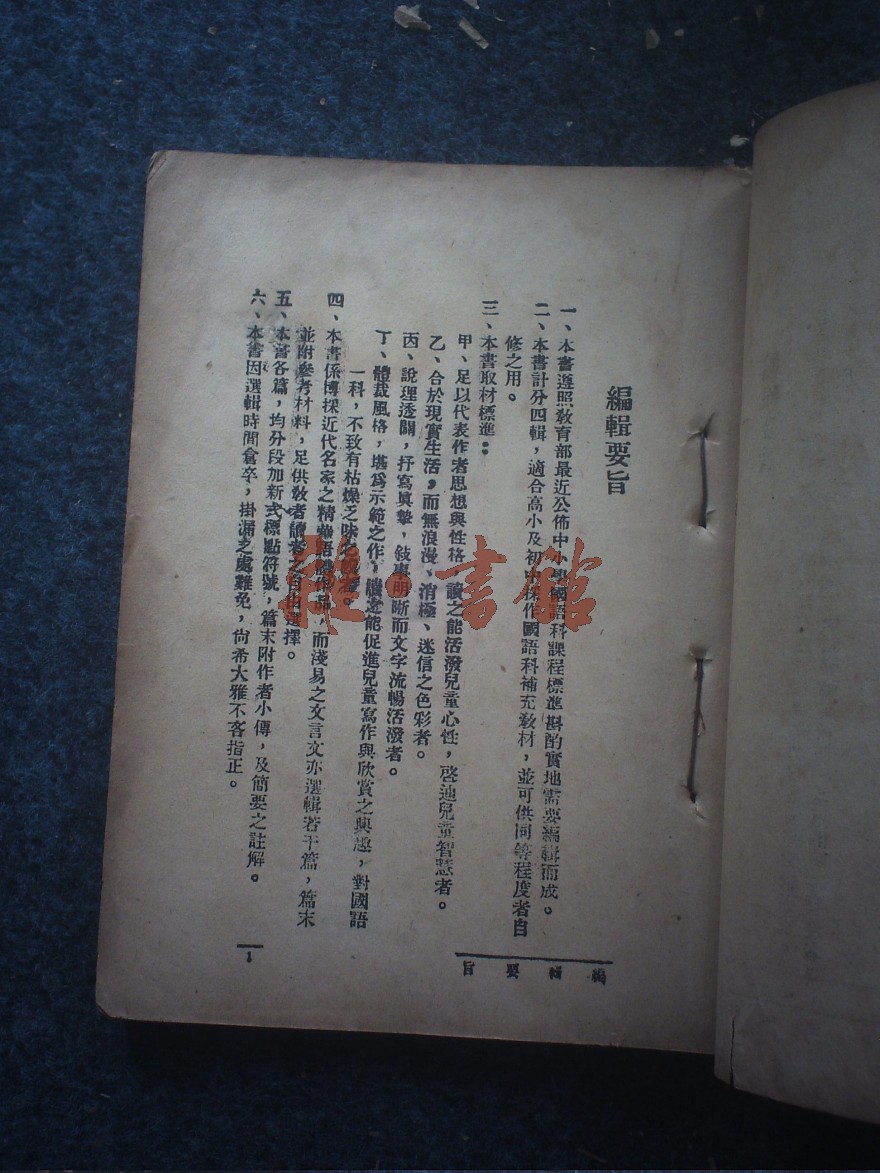 編輯要旨
一、本書遵照敎育部最近公佈中小學國語科課程標準斟酌實地需要編輯而成。
二、本書計分四輯，適合高小及初中 作國語科補充敎材，並可供同等程度者自
修之用。
三、本書取材標準：
甲、足以代表作者思想與性格，讀之能活潑兒童心性，啓迪兒童智慧者。
乙、合於現實生活，而無浪漫、消極、迷信之色彩者。
丙、說理透闢，抒寫眞摯，敍事明晰而文字流暢活潑者。
丁、體裁風格，堪爲示範之作，讀之能促進兒童寫作與欣賞之興趣，對國語
一科，不致有枯燥乏味之
四、本書係博採近代名家之精 語體作品，而淺易之文言文亦選輯若干篇，篇末
並附參考材料，足供敎者讀者之自由選擇。
五、本書各篇，均分段加新式標點符號，篇末附作者小傳，及簡要之註解。
六、本書因選輯時間倉卒，掛漏之處難免，尙希大雅不吝指正。
編輯要旨
1
雜·書館